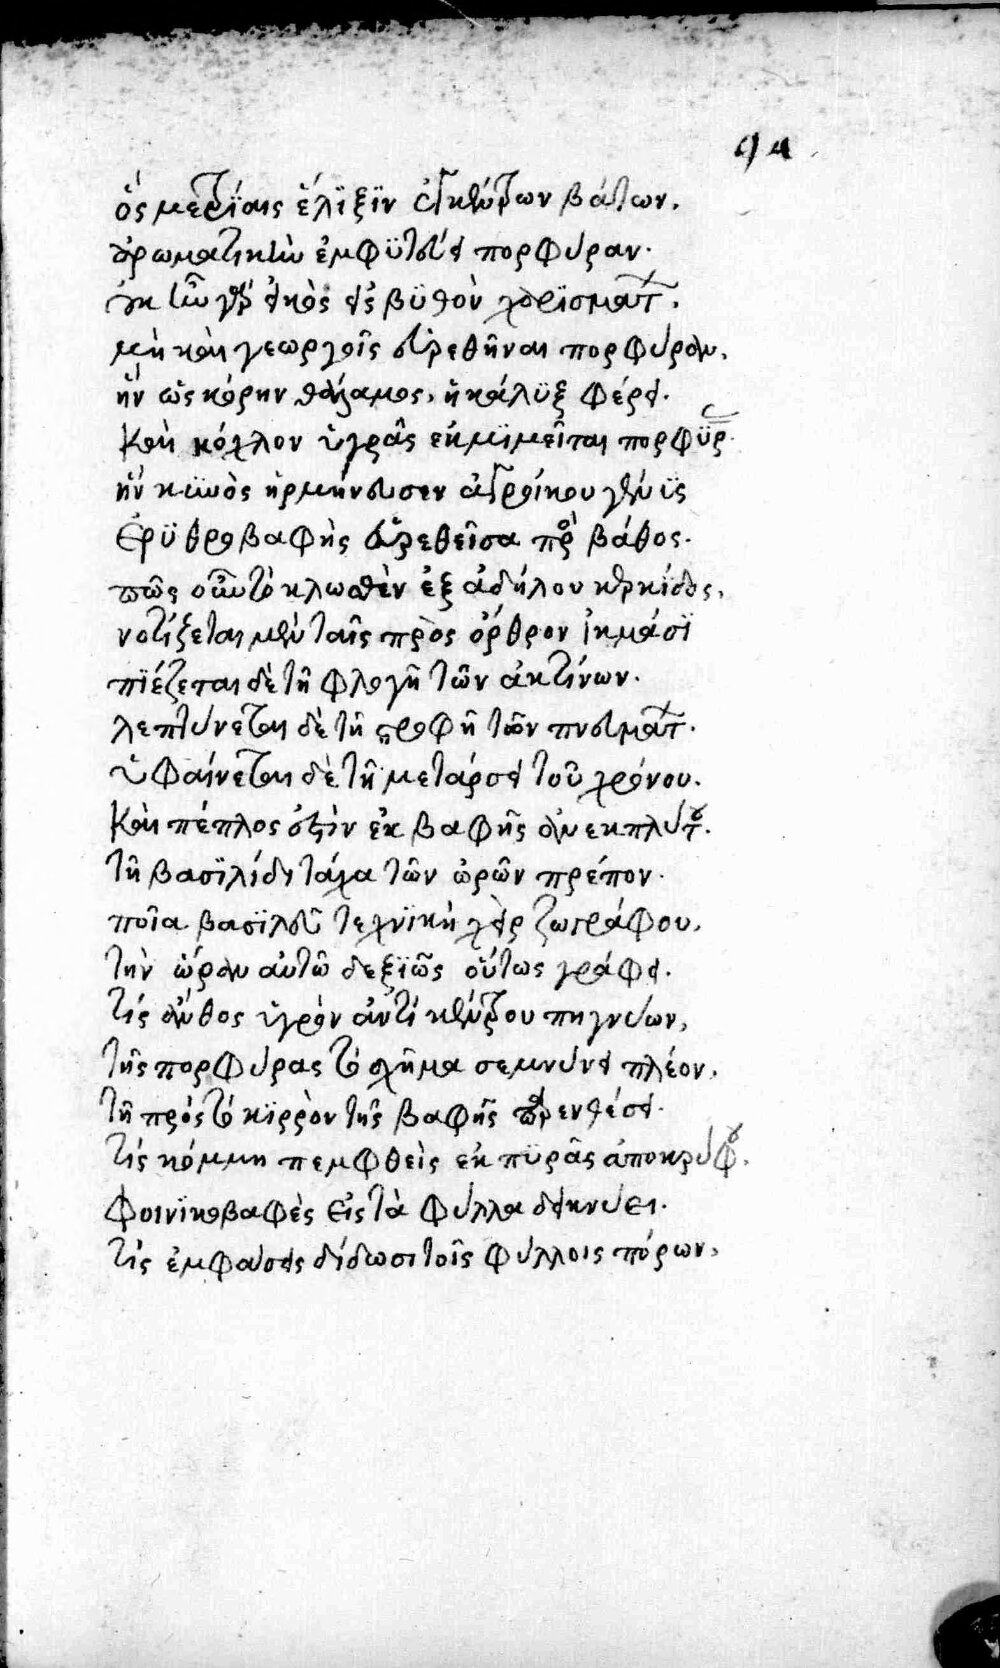 ϟα
ὃς μετρίαις ἕλιξιν ἐγκέντρων βάτων.
ἀρωματικὴν ἐμφυτεύει πορφύραν.
ἐκ τῶν γὰρ εἰκὸς εἰς βυθὸν χορισμάτ.
μὴ καὶ γεωργοῖς εὑρεθῆναι πορφύραν.
ἣν ὡς κόρην θάλαμος, ἡ κάλυξ φέρει.
Καὶ κόχλον ὑγρᾶς ἐκμιμεῖται πορφύρ.
ἣν κυνὸς ἡρμήνευσεν ἀγροίκου γένυς
Ἐρυθροβαφὴς εὑρεθεῖσα πρὸς βάθος.
πῶς οὖν τὸ κλωσθὲν ἐξ ἀδήλου κερκίδος,
νοτίζεται μὲν ταῖς πρὸς ὄρθρον ἰκμάσι
πιέζεται δὲ τῇ φλογῇ τῶν ἀκτίνων.
λεπτύνεται δὲ τῇ στροφῇ τῶν πνευμάτ.
ὑφαίνεται δὲ τῇ μετάρσει τοῦ χρόνου.
Καὶ πέπλος ἐστὶν ἐκ βαφῆς ἀνεκπλύτου.
τῇ βασιλίδι τάχα τῶν ὡρῶν πρέπον.
ποῖα βασιλεῦ τεχνικὴ χεὶρ ζωγράφου,
τὴν ὥραν αὐτῶ δεξιῶς οὕτως γράφει.
τίς ἄνθος ὑγρὸν ἀντὶ κέντρου πηγνύων,
τῆς πορφύρας τὸ σχῆμα σεμνύνει πλέον,
τῇ πρὸς τὸ κιρρὸν τῆς βαφῆς παρενθέσει.
τίς κόμμι πεμφθεὶς ἐκ πυρᾶς ἀποκρύφου.
Φοινικοβαφὲς εἰς τὰ φύλλα δεικνύει.
τίς ἐμφάσεις δίδωσι τοῖς φύλλοις πόρων,